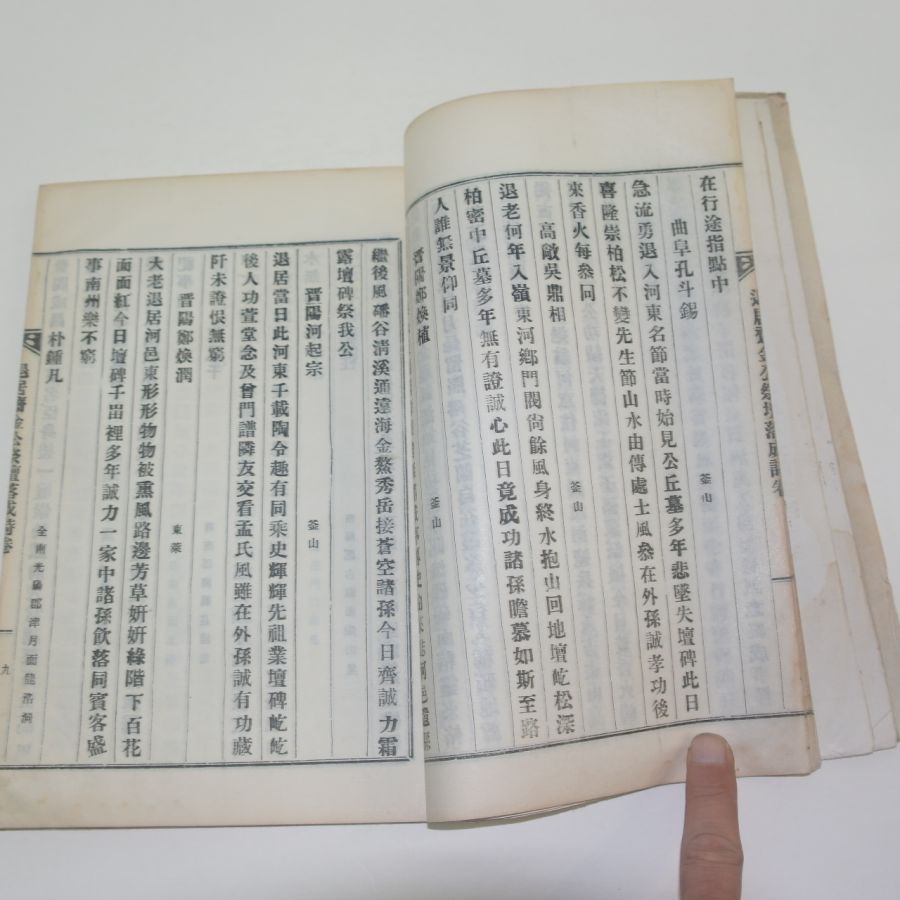 在行途指點中
曲阜孔斗錫 釜山
急流勇退入河東名節當時始見公丘墓多年悲墜失壇碑此日
喜隆崇柏松不變先生節山水由傳處士風參在外孫誠孝功後
來香火每叅同
高敞吳鼎相 釜山
退老何年入嶺東河鄕門閥尙餘風身終水抱山回地壇屹松深
柏密中丘墓多年無有證誠心此日竟成功諸孫瞻慕如斯至路
人誰無景仰同
晋陽鄭煥植 釜山
繼後風磻谷淸溪通遠海金鰲秀岳接蒼空諸孫今日齊誠力霜
露壇碑祭我公
晋陽河起宗 釜山
退居當日此河東千載陶令趣有同乘史輝輝先祖業壇碑屹屹
後人功萱堂念及曾門譜隣友交看孟氏風雖在外孫誠有功藏
阡未證恨無窮
晋陽鄭煥潤 東萊
大老退居河邑東形形物物被薰風路邊芳草姸姸綠階下百花
面面紅今日壇碑千畄裡多年誠力一家中諸孫飮落同賓客盛
事南州樂不窮
朴鍾凡 全南光陽郡津月面龍
退居齋金公祭壇落成詩卷 九